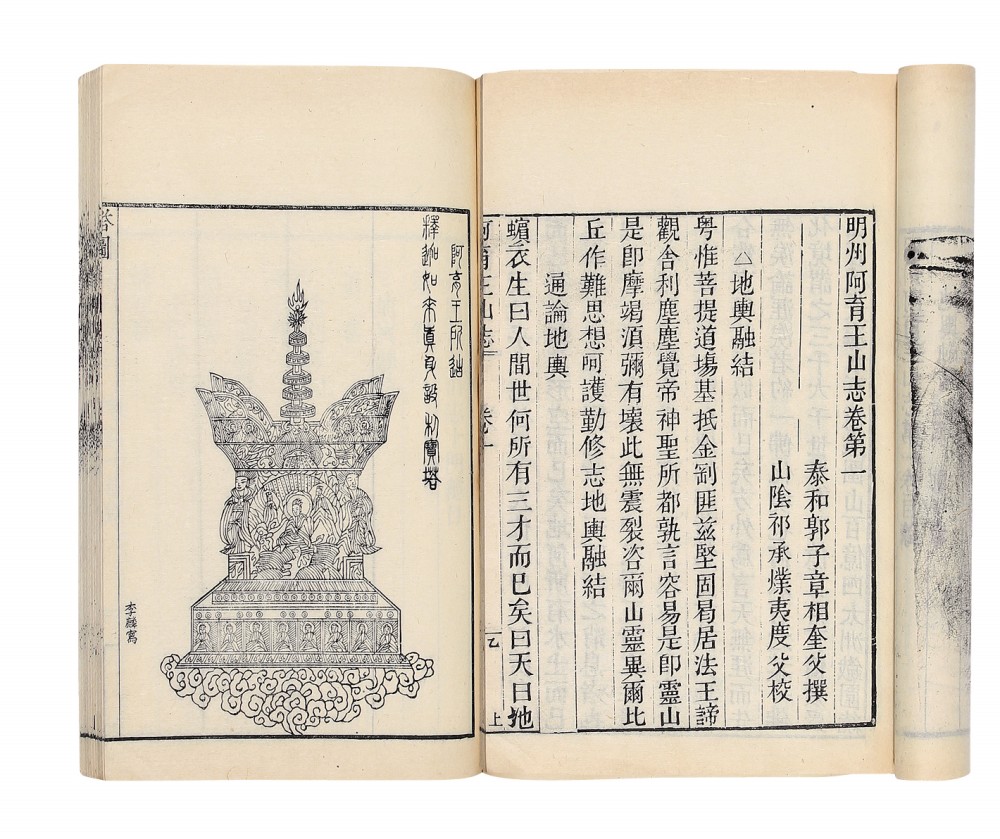 明州阿育王山志卷第一
泰和郭子章相奎父撰
山陰祁承㸁夷度父校
△地輿融結
粤惟菩提道塲基抵金剎匪兹堅固曷居法王諦
觀舍利塵塵覺帝神聖所都孰言容易是卽靈山
是卽摩竭湏彌有壞此無震裂咨爾山靈異爾比
丘作難思想呵護勤修志地輿融結
通論地輿
蠙衣生曰人間世何所有三才而已矣曰天曰地
阿育王山志
卷一
乙
上
阿育王所造
釋迦如來真身設利寶塔
李麟寫
塔圖